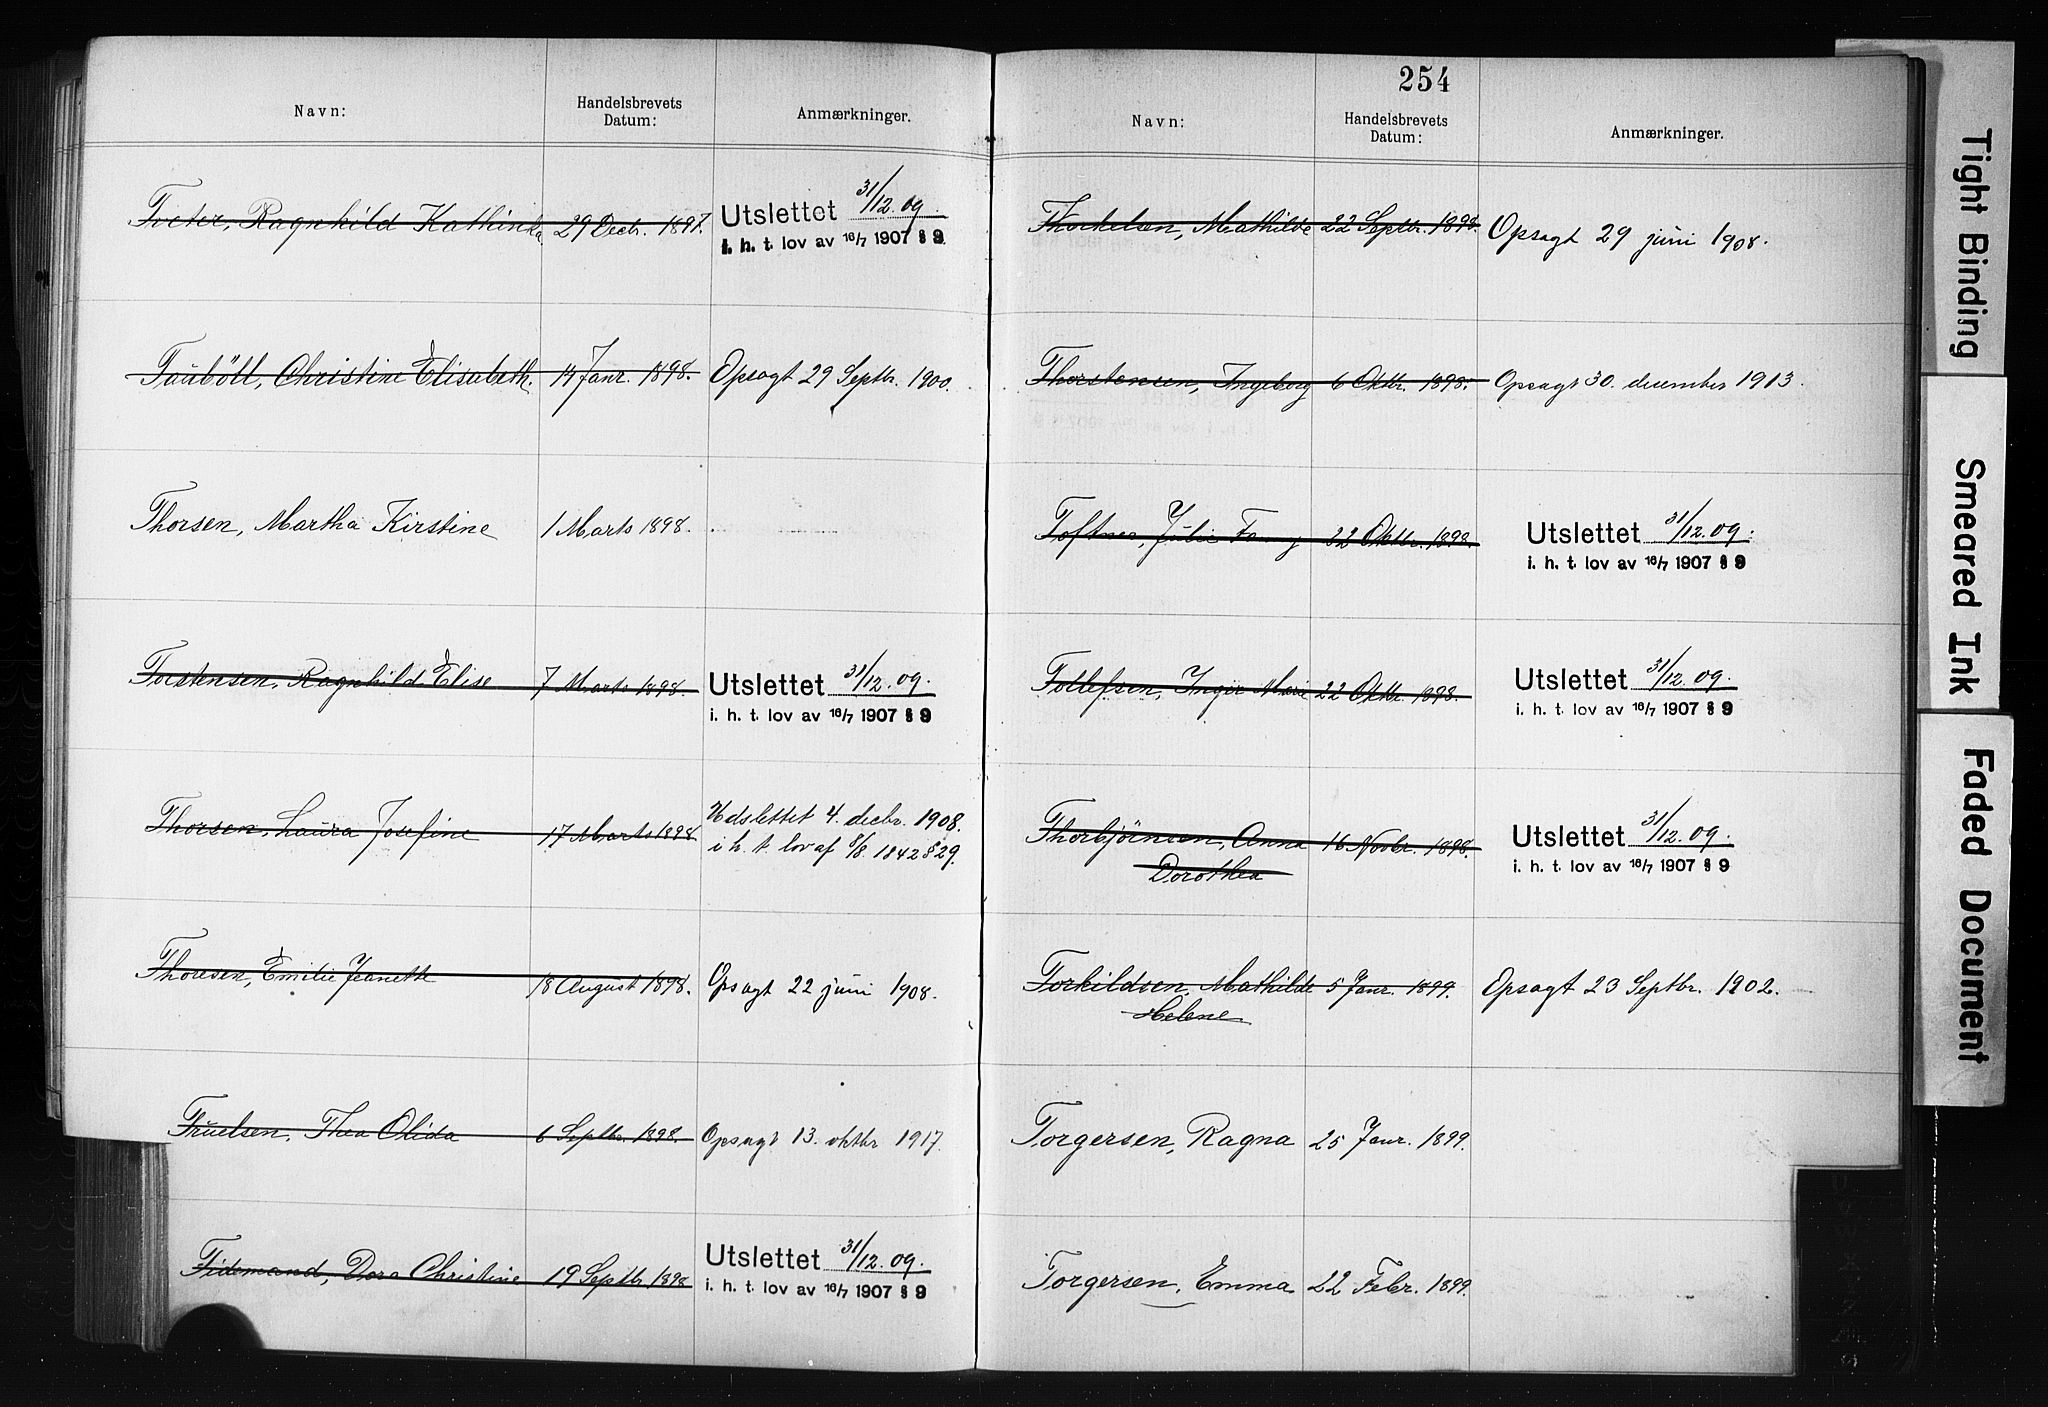 Navn:
Handelsbrevets
Datum:
Anmærkninger.
Tveter, Ragnhild Kathinka 29 Decb. 1897. Utslettet 31/12.09.
i. h. t. lov av 16/7 1907 § 9
Tauböll, Christine Elisabeth. 14 Janr. 1898. Opsagt 29 Septbr. 1900.
Thorsen, Martha Kirstine 1 Marts 1898.
Torstensen, Ragnhild Elise 7 Marts 1898. Utslettet 31/12.09.
i. h. t. lov av 16/7 1907 § 9
Thorsen, Laura Josefine 17 Marts 1898 Udslettet 4. decbr. 1908.
i h. t. lov af 8/8. 1842 § 29.
Thoresen, Emilie Jeanette 18 August 1898. Opsagt 22 juni 1908.
Truelsen, Thea Olida 6 Septbr. 1898. Opsagt 13. oktbr 1917.
Tidemand, Dora Christine 19 Septbr 1898 Utslettet 31/12.09.
i. h. t. lov av 16/7 1907 § 9
254
Navn:
Handelsbrevets
Datum:
Anmærkninger.
Thorkelsen, Mathilde 22 Septbr. 1898. Opsagt 29 juni 1908.
Thorstensen, Ingeborg 6 Oktbr. 1898. Opsagt 30. december 1913.
Toftnes, Julie Fanny 22 Oktbr. 1898. Utslettet 31/12.09.
i. h. t. lov av 16/7 1907 § 9
Tollefsen, Inger Marie 22 Oktbr. 1898. Utslettet 31/12.09.
i. h. t. lov av 16/7 1907 § 9
Thorbjörnsen, Anna 16 Novbr. 1898. Utslettet 31/12.09.
Dorothea i. h. t. lov av 16/7 1907 § 9
Torkildsen, Mathilde 5 Janr. 1899. Opsagt 23 Septbr. 1902.
Helene
Torgersen, Ragna 25 Janr. 1899.
Torgersen, Emma 22 Febr. 1899.
Tight Binding
Smeared Ink
Faded Document